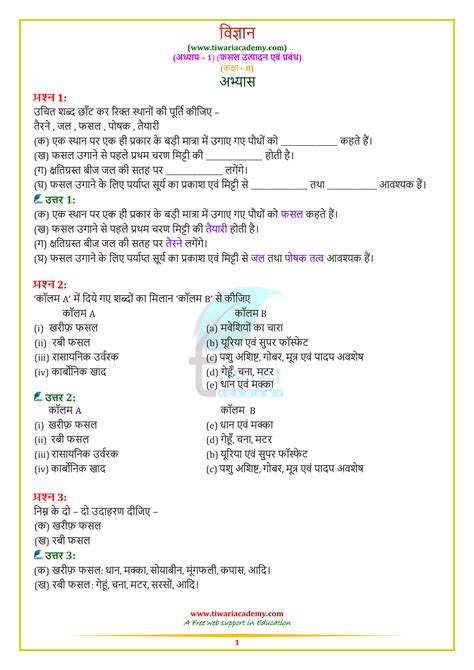 विज्ञान
(www.tiwariacademy.com)
(अध्याय – 1) (फसल उत्पादन एवं प्रबंध)
(कक्षा – 8)
अभ्यास
प्रश्न 1:
उचित शब्द छाँट कर रिक्त स्थानों की पूर्ति कीजिए –
तैरने , जल , फसल , पोषक , तैयारी
(क) एक स्थान पर एक ही प्रकार के बड़ी मात्रा में उगाए गए पौधों को ____________ कहते हैं।
(ख) फसल उगाने से पहले प्रथम चरण मिट्टी की ____________ होती है।
(ग) क्षतिग्रस्त बीज जल की सतह पर ____________ लगेंगे।
(घ) फसल उगाने के लिए पर्याप्त सूर्य का प्रकाश एवं मिट्टी से ____________ तथा __________ आवश्यक हैं।
उत्तर 1:
(क) एक स्थान पर एक ही प्रकार के बड़ी मात्रा में उगाए गए पौधों को फसल कहते हैं।
(ख) फसल उगाने से पहले प्रथम चरण मिट्टी की तैयारी होती है।
(ग) क्षतिग्रस्त बीज जल की सतह पर तैरने लगेंगे।
(घ) फसल उगाने के लिए पर्याप्त सूर्य का प्रकाश एवं मिट्टी से जल तथा पोषक तत्व आवश्यक हैं।
प्रश्न 2:
‘कॉलम A’ में दिये गए शब्दों का मिलान ‘कॉलम B’ से कीजिए
कॉलम A कॉलम B
(i) खरीफ़ फसल (a) मवेशियों का चारा
(ii) रबी फसल (b) यूरिया एवं सुपर फॉस्फेट
(iii) रासायनिक उर्वरक (c) पशु अशिष्ट, गोबर, मूत्र एवं पादप अवशेष
(iv) कार्बोनिक खाद (d) गेहूँ, चना, मटर
(e) धान एवं मक्का
ACADEMY
उत्तर 2:
कॉलम A कॉलम B
(i) खरीफ़ फसल (e) धान एवं मक्का
(ii) रबी फसल (d) गेहूँ, चना, मटर
(iii) रासायनिक उर्वरक (b) यूरिया एवं सुपर फॉस्फेट
(iv) कार्बोनिक खाद (c) पशु अशिष्ट, गोबर, मूत्र एवं पादप अवशेष
प्रश्न 3:
निम्न के दो – दो उदाहरण दीजिए –
(क) खरीफ़ फसल
(ख) रबी फसल
उत्तर 3:
(क) खरीफ़ फसल: धान, मक्का, सोयाबीन, मूंगफली, कपास, आदि।
(ख) रबी फसल: गेहूं, चना, मटर, सरसों, आदि।
www.tiwariacademy.com
A Free web support in Education
1